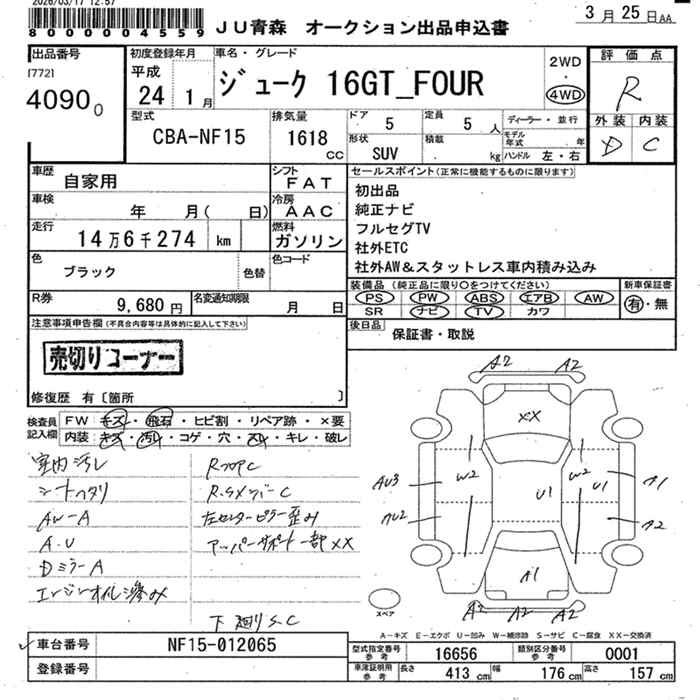 2026/03/17 12:57
8000004559 JU青森 オークション出品申込書 3月25日AA
出品番号 初度登録年月 車名・グレード 2WD 評価点
[772] 平成 ・
4090 0 24 1月 ジューク 16GT_FOUR 4WD R
型式 排気量 ドア 定員 ディーラー・並行 外装 内装
CBA-NF15 1618 CC 5 5 人 モデル年式 年 D C
形状 SUV 積載 kg ハンドル 左・右
車歴 自家用 シフト FAT セールスポイント(正常に機能するものに限ります)
車検 年 月( 日) 冷房 AAC 初出品
純正ナビ
走行 14万6千274 km 燃料 ガソリン フルセグTV
社外ETC
色 ブラック 色替 色コード 社外AW&スタットレス車内積み込み
装備品(純正品に限り○をつけてください) 新車保証書
R券 9,680円 名変通知期限 月 日 PS PW ABS エアB AW 有・無
SR ナビ TV カワ
注意事項申告欄(不具合内容等は具体的に記入して下さい) 後日品 保証書・取説
売切りコーナー
修復歴 有〔箇所 〕
検査員記入欄 FW:キズ・飛石・ヒビ割・リペア跡・×要
内装:キズ・汚れ・コゲ・穴・スレ・キレ・破レ
室内汚レ RフロアC
シートヘタリ R.SメンバーC
AW-A 左センターピラー歪み
A.U アッパーサポート一部××
DミラーA
エンジンオイル滲み
下廻りS.C
A2 A2
××
AU3 W2 W2 A1
U1 U1
AU2 A2
A1
A2 A2 A2
スペア
A-キズ E-エクボ U-凹み W-補修跡 S-サビ C-腐食 XX-交換済
車台番号 NF15-012065 型式指定番号参考 16656 類別区分番号参考 0001
登録番号 車庫証明用参考 長さ 413 cm 幅 176 cm 高さ 157 cm